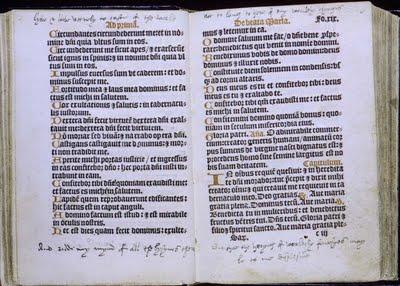 Lytle & litle vtterly to caste of the world
Ad primā.
Circundantes circundederunt me: et in nomine dn̄i quia vltus sum in eos.
Circundederunt me sicut apes/ et exarserūt
sicut ignis in spinis: et in nomine dn̄i quia vltus sum in eos.
Impulsus euersus sum vt caderem: et dominus suscepit me.
Fortitudo mea et laus mea dominus: et factus est michi in salutem.
Uox exultationis et salutis: in tabernaculis iustorum.
Dextera dn̄i fecit virtutē dextera dn̄i exaltauit me: dextera dn̄i fecit virtutem.
Nō moriar sed viuā: et narrabo opera dn̄i.
Castigans castigauit me dominus: et morti non tradidit me.
Aperite michi portas iusticie/ et ingressus in eas confitebor dn̄o: hec porta dn̄i iusti intrabunt in eam.
Confitebor tibi dn̄e quoniam exaudisti me:
et factus es michi in salutem.
Lapidē quem reprobauerunt edificantes:
hic factus est in caput anguli.
A domino factum est istud: et est mirabile
in oculis nostris.
Hec est dies quam fecit dominus: exulte-
And ridde my mynd of all the bysynes therof
Not to long to here of eny worldely thyngis
De beata Maria. Fo.xix.
mus et letemur in ea.
O domine saluum me fac/ o dn̄e bene prosperare: benedictus qui venit in nomine domini.
Benediximus vobis de domo domini: deus
dominus et illuxit nobis.
Constituite diem solemnem in condensis: vsqꝫ ad cornu altaris.
Deus meus es tu et confitebor tibi: deus
meus es tu et exaltabo te.
Confitebor tibi qm̄ exaudisti me: et factus
es michi in salutem.
Confitemini domino quoniā bonus: quoniam in seculum misericordia eius.
Gloria patri. Añā. O admirabile commercium: creator generis humani/ animatū corpus sumens de virgine nasci dignatus est: et
procedens homo sine semine largitus est nobis suam deitatem. Capitulum.
In oībus requiē quesiui: et in hereditate dn̄i morabor. tūc precepit et dixit michi
creator oīm: et qui creauit me requieuit in tabernaculo meo. Deo gratias. Aue maria
gratia plena. Dominus tecū. Aue maria.
Benedicta tu in mulieribus: et benedictus
fructus vētris tui. Dn̄s tecū. Gloria patri et
filio et spiritui sancto. Aue maria gratia ple-
Sax. c iii
But that the heryng of worldely fantesyes may
be to me displesaunt